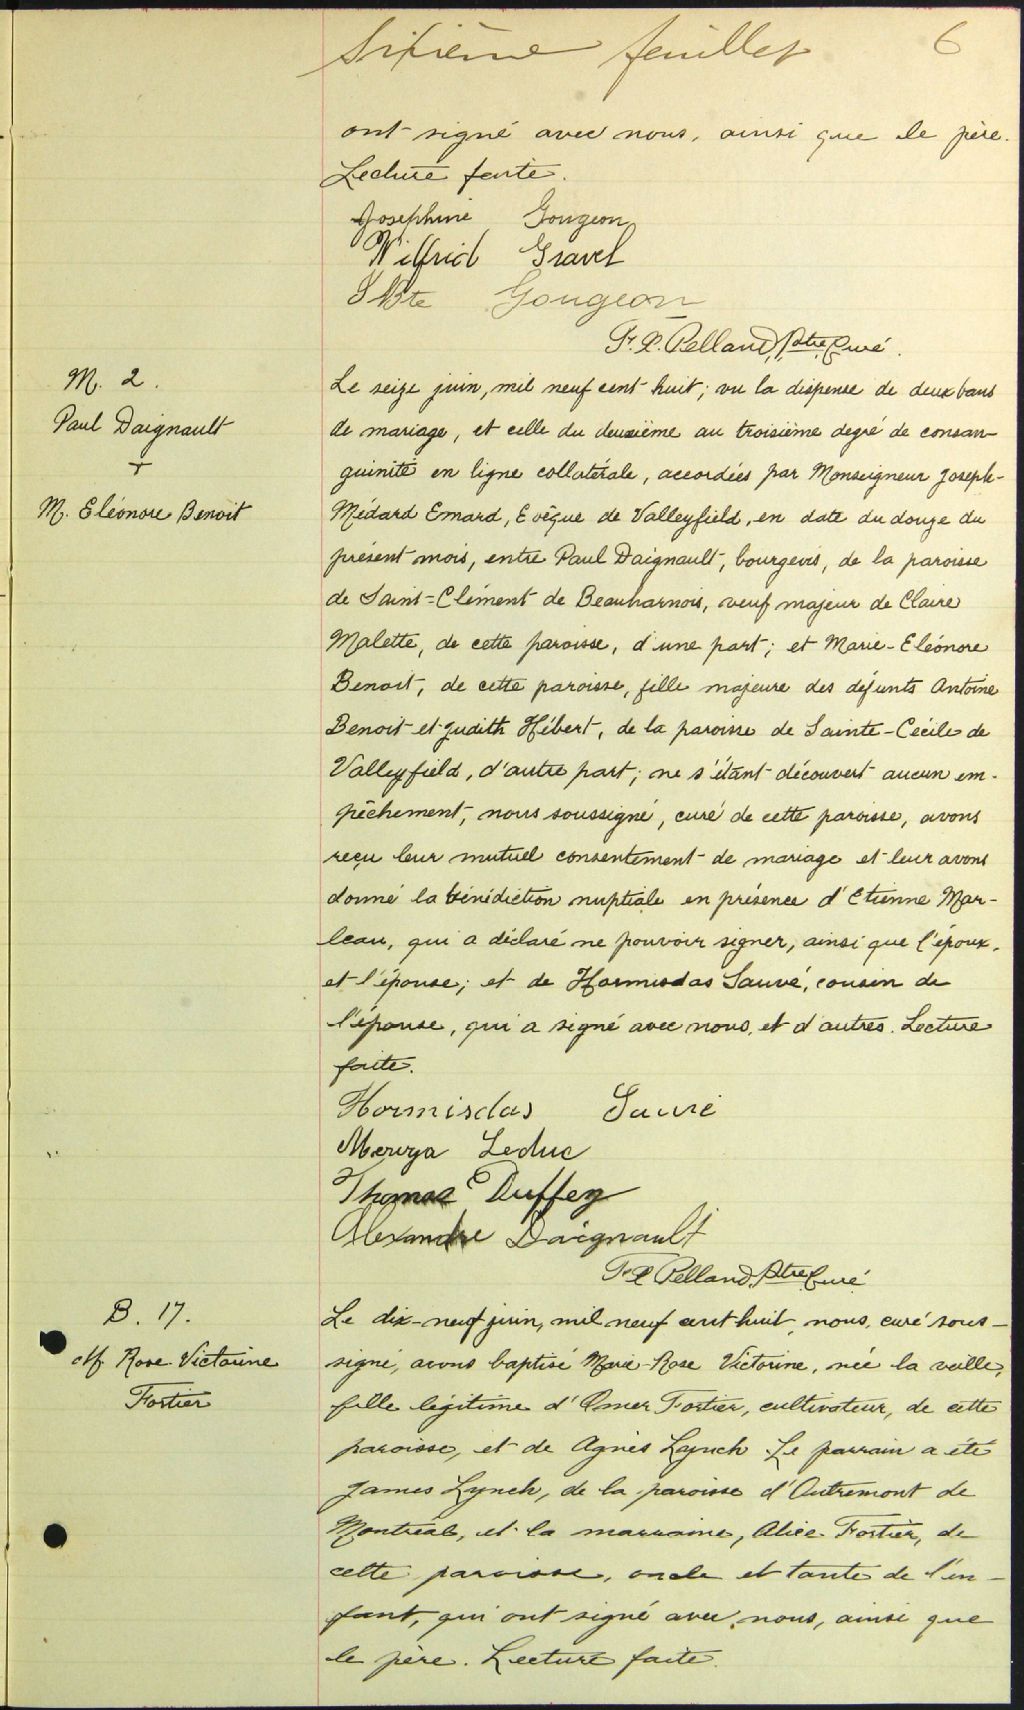 Sixième feuillet 6
ont signé avec nous, ainsi que le père.
Lecture faite.
Josephine Gougeon
Wilfrid Gravel
J Bte Gougeon
F. P. Pelland, Ptre Curé.
M. 2.
Paul Daignault
+
M. Eléonore Benoit
Le seize juin, mil neuf cent huit; vu la dispense de deux bans
de mariage, et celle du deuxième au troisième degré de consan-
guinité en ligne collatérale, accordées par Monseigneur Joseph-
Médard Emard, Evêque de Valleyfield, en date du douze du
présent mois, entre Paul Daignault, bourgeois, de la paroisse
de Saint-Clément de Beauharnois, veuf majeur de Claire
Malette, de cette paroisse, d'une part; et Marie-Eléonore
Benoit, de cette paroisse, fille majeure des défunts Antoine
Benoit et Judith Hébert, de la paroisse de Sainte-Cécile de
Valleyfield, d'autre part; ne s'étant découvert aucun em-
pêchement, nous soussigné, curé de cette paroisse, avons
reçu leur mutuel consentement de mariage et leur avons
donné la bénédiction nuptiale en présence d'Etienne Mar-
leau, qui a déclaré ne pouvoir signer, ainsi que l'époux,
et l'épouse; et de Hormisdas Sauvé, cousin de
l'épouse, qui a signé avec nous, et d'autres. Lecture
faite.
Hormisdas Sauvé
Leduc
Thomas Duffey
Alexandre Daignault
F. P. Pelland, Ptre Curé
B. 17.
M Rose-Victorine
Fortier
Le dix-neuf juin, mil neuf cent huit, nous, curé sous-
signé, avons baptisé Marie-Rose Victorine, née la veille,
fille légitime d'Omer Fortier, cultivateur, de cette
paroisse, et de Agnès Lynch. Le parrain a été
James Lynch, de la paroisse d'Outremont de
Montréal, et la marraine, Alice Fortier, de
cette paroisse, oncle et tante de l'en-
fant, qui ont signé avec nous, ainsi que
le père. Lecture faite.